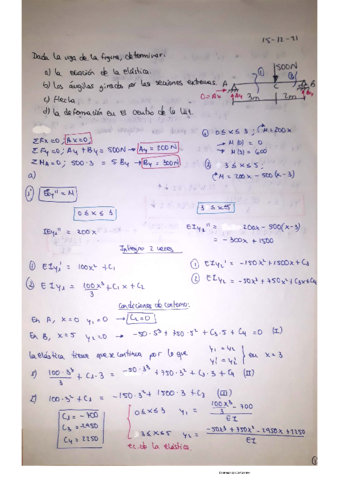 15-12-21
Dada la viga de la figura, determinar:
a) la ecuación de la elástica.
b) los ángulos girados por las secciones extremas.
c) Flecha
d) la deformación en el centro de la luz.
500N
A C B
3m 2m
0=Ax Ay By
ΣFx=0; Ax=0
ΣFy=0; Ay+By=500N → Ay=200N
ΣMA=0; 500·3 = 5By → By=300N
① 0≤x≤3; M=200x
→ M(0) = 0
→ M(3) = 600
② 3≤x≤5;
M=200x-500(x-3)
a)
EIy'' = M
0≤x≤3
3≤x≤5
IEy1'' = 200x
EIy2'' = 200x-500(x-3)
= -300x+1500
Integro 2 veces
① EIy1' = 100x²+C1
② EIy1 = 100x³/3 + C1x + C2
① EIy2' = -150x²+1500x+C3
② EIy2 = -50x³+750x²+C3x+C4
Condiciones de contorno:
En A, x=0 y1=0 → C2=0
En B, x=5 y2=0 → -50·5³+750·5²+C3·5+C4=0 (I)
la elástica tiene que ser continua por lo que y1=y2 y1'=y2' en x=3
1) 100·3³/3 + C1·3 = -50·3³+750·3²+C3·3+C4 (II)
2) 100·3²+C1 = -150·3²+1500·3+C3 (III)
C1=-700
C3=-2950
C4=2250
0≤x≤3 y1 = (100x³/3 - 700)/EI
3≤x≤5 y2 = (-50x³+750x²-2950x+2250)/EI
ec. de la elástica.